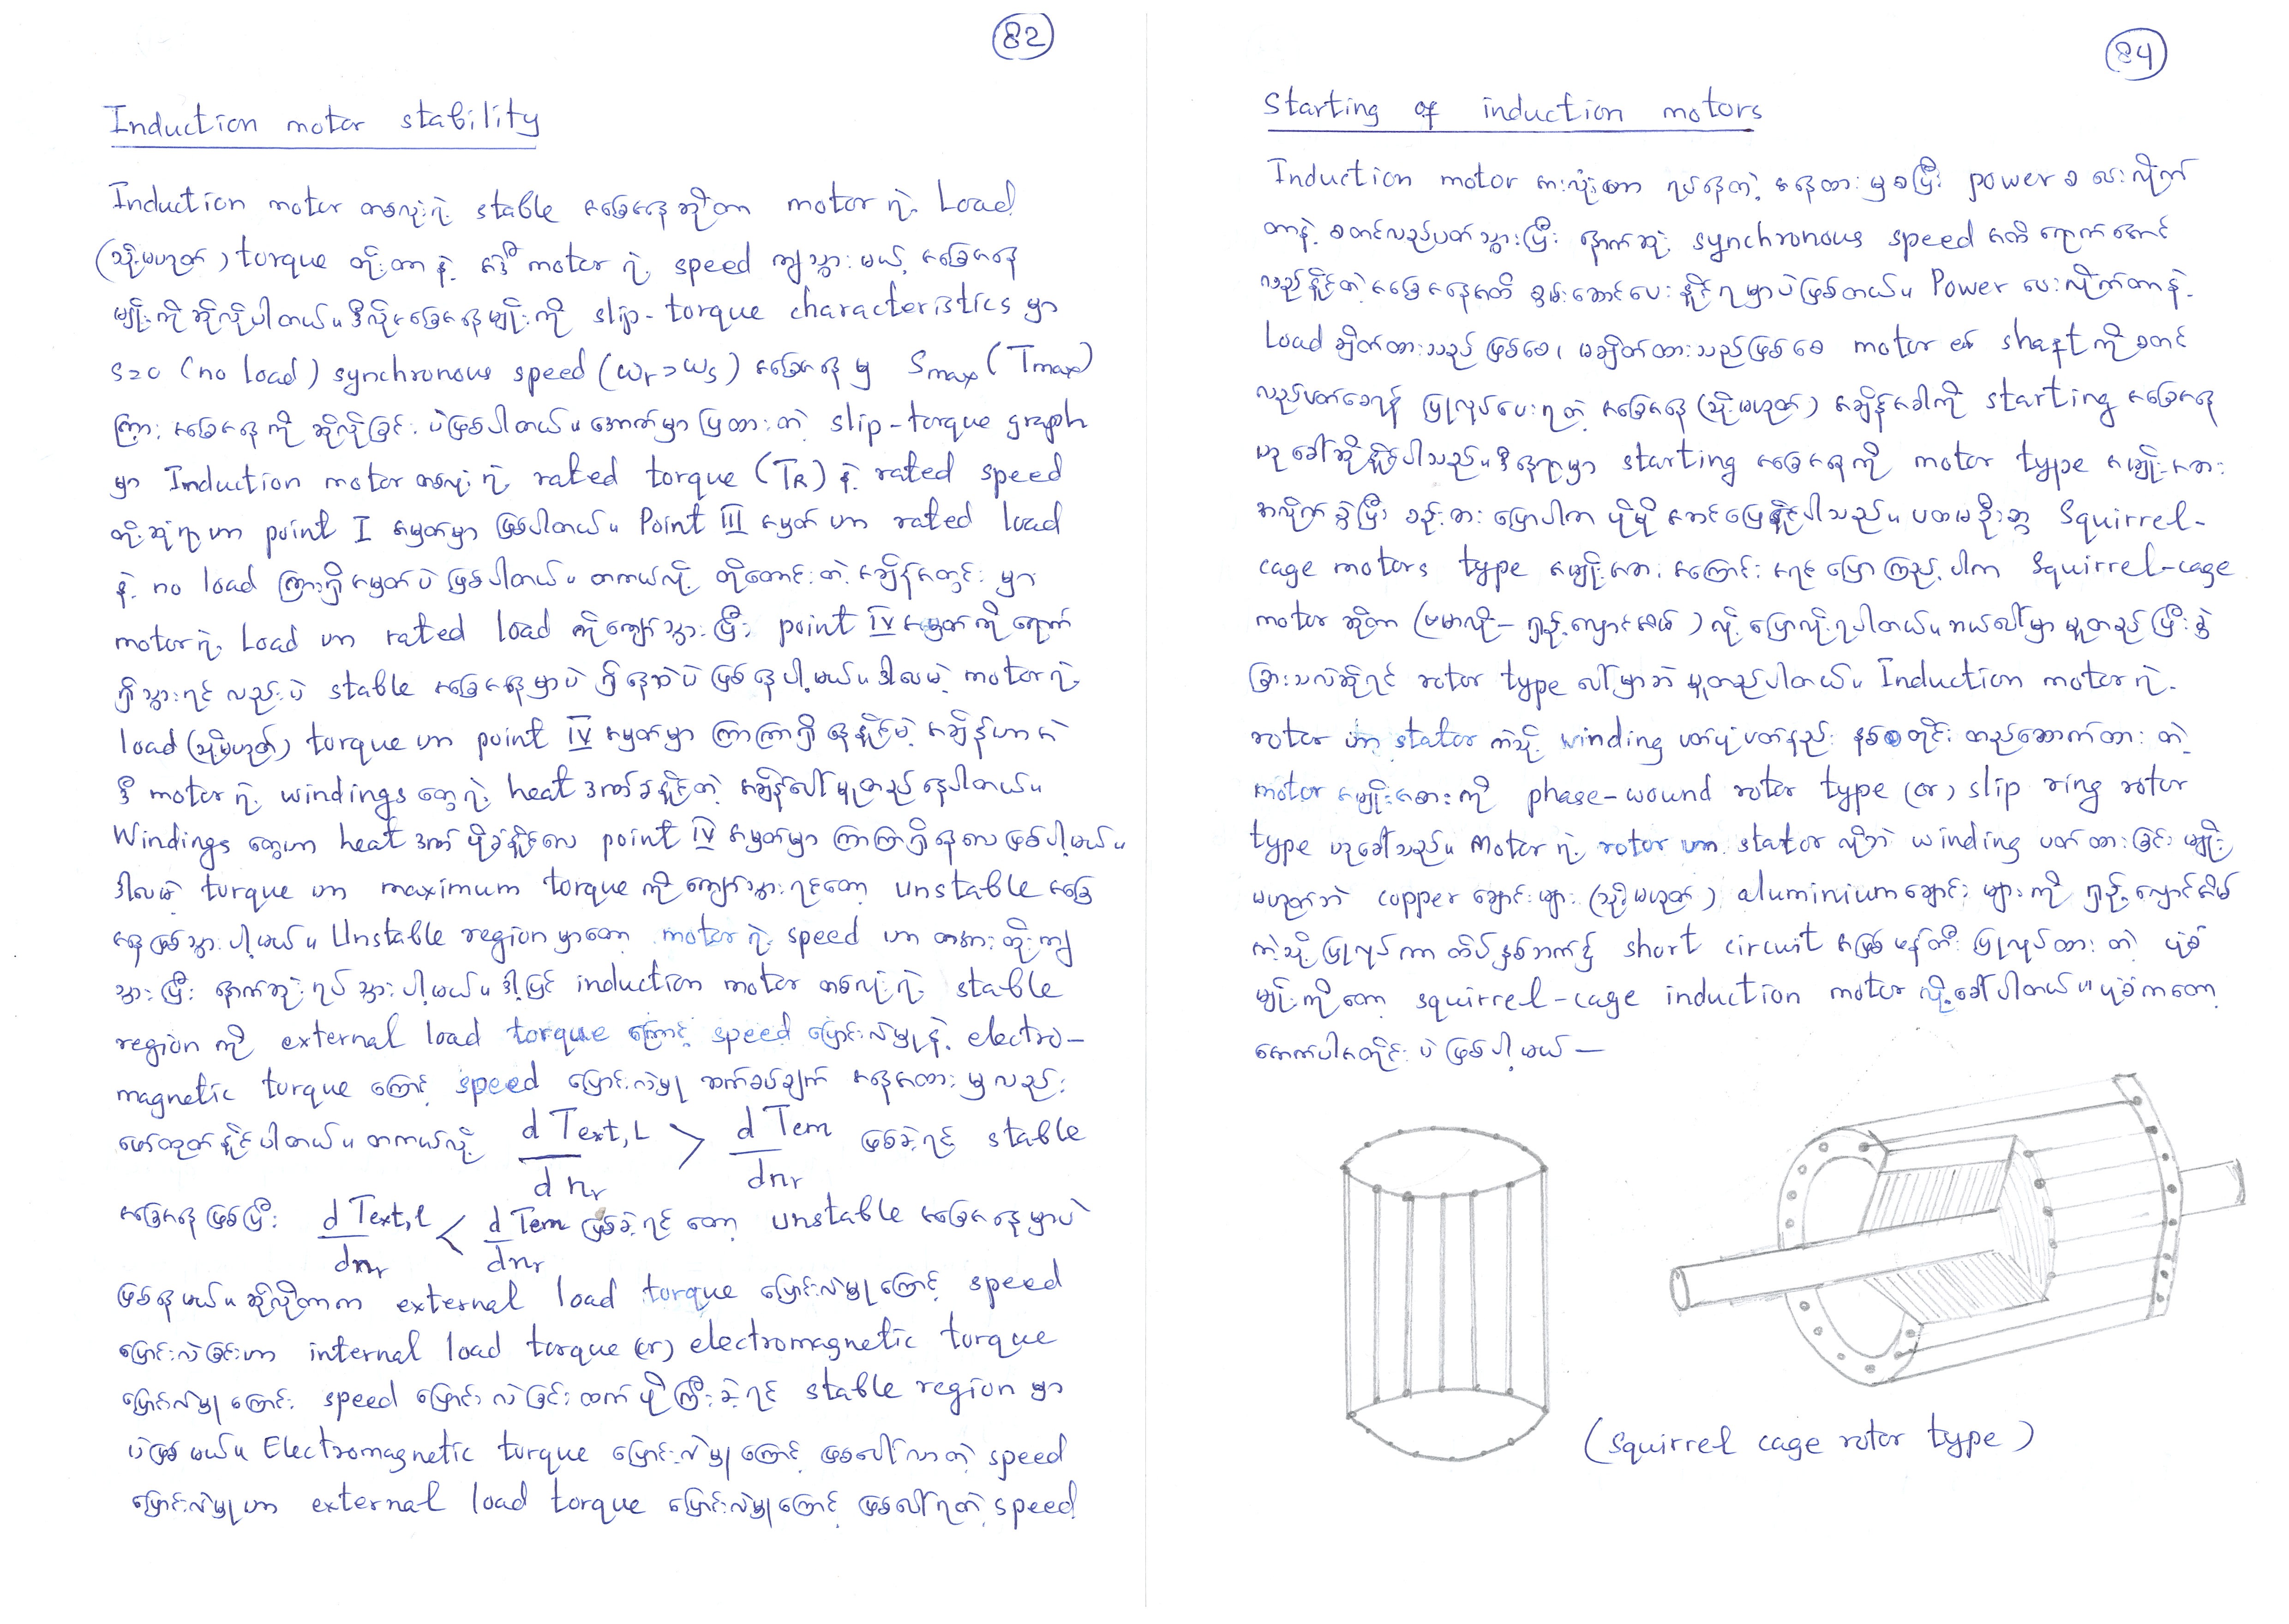 82
Induction motor stability
Induction motor တစ်လုံးရဲ့ stable အခြေအနေဆိုတာ motor ရဲ့ Load
(သို့မဟုတ်) torque တိုးတာနဲ့ အဲဒီ motor ရဲ့ speed ကျသွားမယ့် အခြေအနေ
မျိုးကို ဆိုလိုပါတယ်။ ဒီလိုအခြေအနေမျိုးကို slip-torque characteristics မှာ
s=0 (no load) synchronous speed (ωr>ωs) အခြေအနေမှ Smax (Tmax)
ကြား အခြေအနေကို ဆိုလိုခြင်း ပဲဖြစ်ပါတယ်။ အောက်မှာ ပြထားတဲ့ slip-torque graph
မှာ Induction motor တစ်လုံးရဲ့ rated torque (TR) နဲ့ rated speed
တို့ဆုံရာဟာ point I အမှတ်မှာ ဖြစ်ပါတယ်။ Point III အမှတ် ဟာ rated load
နဲ့ no load ကြားရှိအမှတ်ပဲ ဖြစ်ပါတယ်။ တကယ်လို့ တိုတောင်းတဲ့ အချိန်အတွင်းမှာ
motor ရဲ့ Load ဟာ rated load ကိုကျော်သွားပြီး point IV အမှတ်ကို ရောက်
ရှိသွားရင် လည်းပဲ stable အခြေအနေမှာပဲ ရှိနေဆဲပဲ ဖြစ်နေပါ့မယ်။ ဒါပေမဲ့ motor ရဲ့
load (သို့မဟုတ်) torque ဟာ point IV အမှတ်မှာ ကြာကြာရှိနေနိုင်မဲ့ အချိန်ဟာ
ဒီ motor ရဲ့ windings တွေရဲ့ heat ဒဏ်ခံနိုင်တဲ့ အချိန်ပေါ်မူတည်နေပါတယ်။
Windings တွေဟာ heat ဒဏ် ပိုခံနိုင်လေ point IV အမှတ်မှာ ကြာကြာရှိနေလေ ဖြစ်ပါ့မယ်။
ဒါပေမဲ့ torque ဟာ maximum torque ကိုကျော်သွားရင်တော့ unstable အခြေ
အနေဖြစ်သွားပါ့မယ်။ Unstable region မှာတော့ motor ရဲ့ speed ဟာ တအားထိုးကျ
သွားပြီး နောက်ဆုံးရပ်သွားပါ့မယ်။ ဒါ့ပြင် induction motor တစ်လုံးရဲ့ stable
region ကို external load torque ကြောင့် speed ပြောင်းလဲမှုနဲ့ electro-
magnetic torque ကြောင့် speed ပြောင်းလဲမှု ဆက်စပ်ချက် အနေအထားမှလည်း
ဖော်ထုတ်နိုင်ပါတယ်။ တကယ်လို့ d Text,L / d nr > d Tem / dnr ဖြစ်ခဲ့ရင် stable
အခြေအနေဖြစ်ပြီး d Text,l / dnr < d Tem / dnr ဖြစ်ခဲ့ရင်တော့ unstable အခြေအနေမှာပဲ
ဖြစ်နေမယ်။ ဆိုလိုတာက external load torque ပြောင်းလဲမှုကြောင့် speed
ပြောင်းလဲခြင်းဟာ internal load torque (or) electromagnetic torque
ပြောင်းလဲမှုကြောင့် speed ပြောင်းလဲခြင်းထက် ပိုကြီးခဲ့ရင် stable region မှာ
ပဲဖြစ်မယ်။ Electromagnetic torque ပြောင်းလဲမှုကြောင့် ဖြစ်ပေါ်လာတဲ့ speed
ပြောင်းလဲမှုဟာ external load torque ပြောင်းလဲမှုကြောင့် ဖြစ်ပေါ်ရတဲ့ speed
84
Starting of induction motors
Induction motor အားလုံးဟာ ရပ်နေတဲ့ အနေထားမှစပြီး power စ ပေးလိုက်
တာနဲ့ စတင်လည်ပတ်သွားပြီး နောက်ဆုံး synchronous speed အထိ ရောက်အောင်
လည်နိုင်တဲ့အခြေအနေအထိ စွမ်းဆောင်ပေးနိုင်ရမှာပဲဖြစ်တယ်။ Power ပေးလိုက်တာနဲ့
Load ချိတ်ထားသည် ဖြစ်စေ၊ မချိတ်ထားသည်ဖြစ်စေ motor ၏ shaft ကိုစတင်
လည်ပတ်စေရန် ပြုလုပ်ပေးရတဲ့ အခြေအနေ (သို့မဟုတ်) အချိန်အခါကို starting အခြေအနေ
ဟုခေါ်ဆိုနိုင်ပါသည်။ ဒီနေရာမှာ starting အခြေအနေကို motor type အမျိုးအစား
အလိုက်ခွဲပြီး စဉ်းစားပြောပါက ပိုမိုအဆင်ပြေနိုင်ပါသည်။ ပထမဦးစွာ Squirrel-
cage motors type အမျိုးအစားအကြောင်းအရင်ပြောကြည့်ပါက Squirrel-cage
motor ဆိုတာ (ဗမာလို- ရှဉ့်လှောင်အိမ်) လို့ပြောလို့ရပါတယ်။ ဘယ်ပေါ်မှာမူတည်ပြီးခွဲ
ခြားသလဲဆိုရင် rotor type ပေါ်မှာဘဲ မူတည်ပါတယ်။ Induction motor ရဲ့
rotor ဟာ stator ကဲ့သို့ winding ပတ်ပုံပတ်နည်း စနစ်တိုင်း တည်ဆောက်ထားတဲ့
motor အမျိုးအစားကို phase-wound rotor type (or) slip ring rotor
type ဟုခေါ်သည်။ Motor ရဲ့ rotor ဟာ stator လိုဘဲ winding ပတ်ထားခြင်းမျိုး
မဟုတ်ဘဲ copper ချောင်းများ (သို့မဟုတ်) aluminium ချောင်းများကို ရှဉ့်လှောင်အိမ်
ကဲ့သို့ပြုလုပ်ကာ ထိပ်နှစ်ဘက်၌ short circuit အဖြစ်ဖန်တီးပြုလုပ်ထားတဲ့ ပုံစံ
မျိုးကိုတော့ squirrel-cage induction motor လို့ခေါ်ပါတယ်။ ပုံစံကတော့
အောက်ပါအတိုင်းပဲ ဖြစ်ပါ့မယ် —
(squirrel cage rotor type)